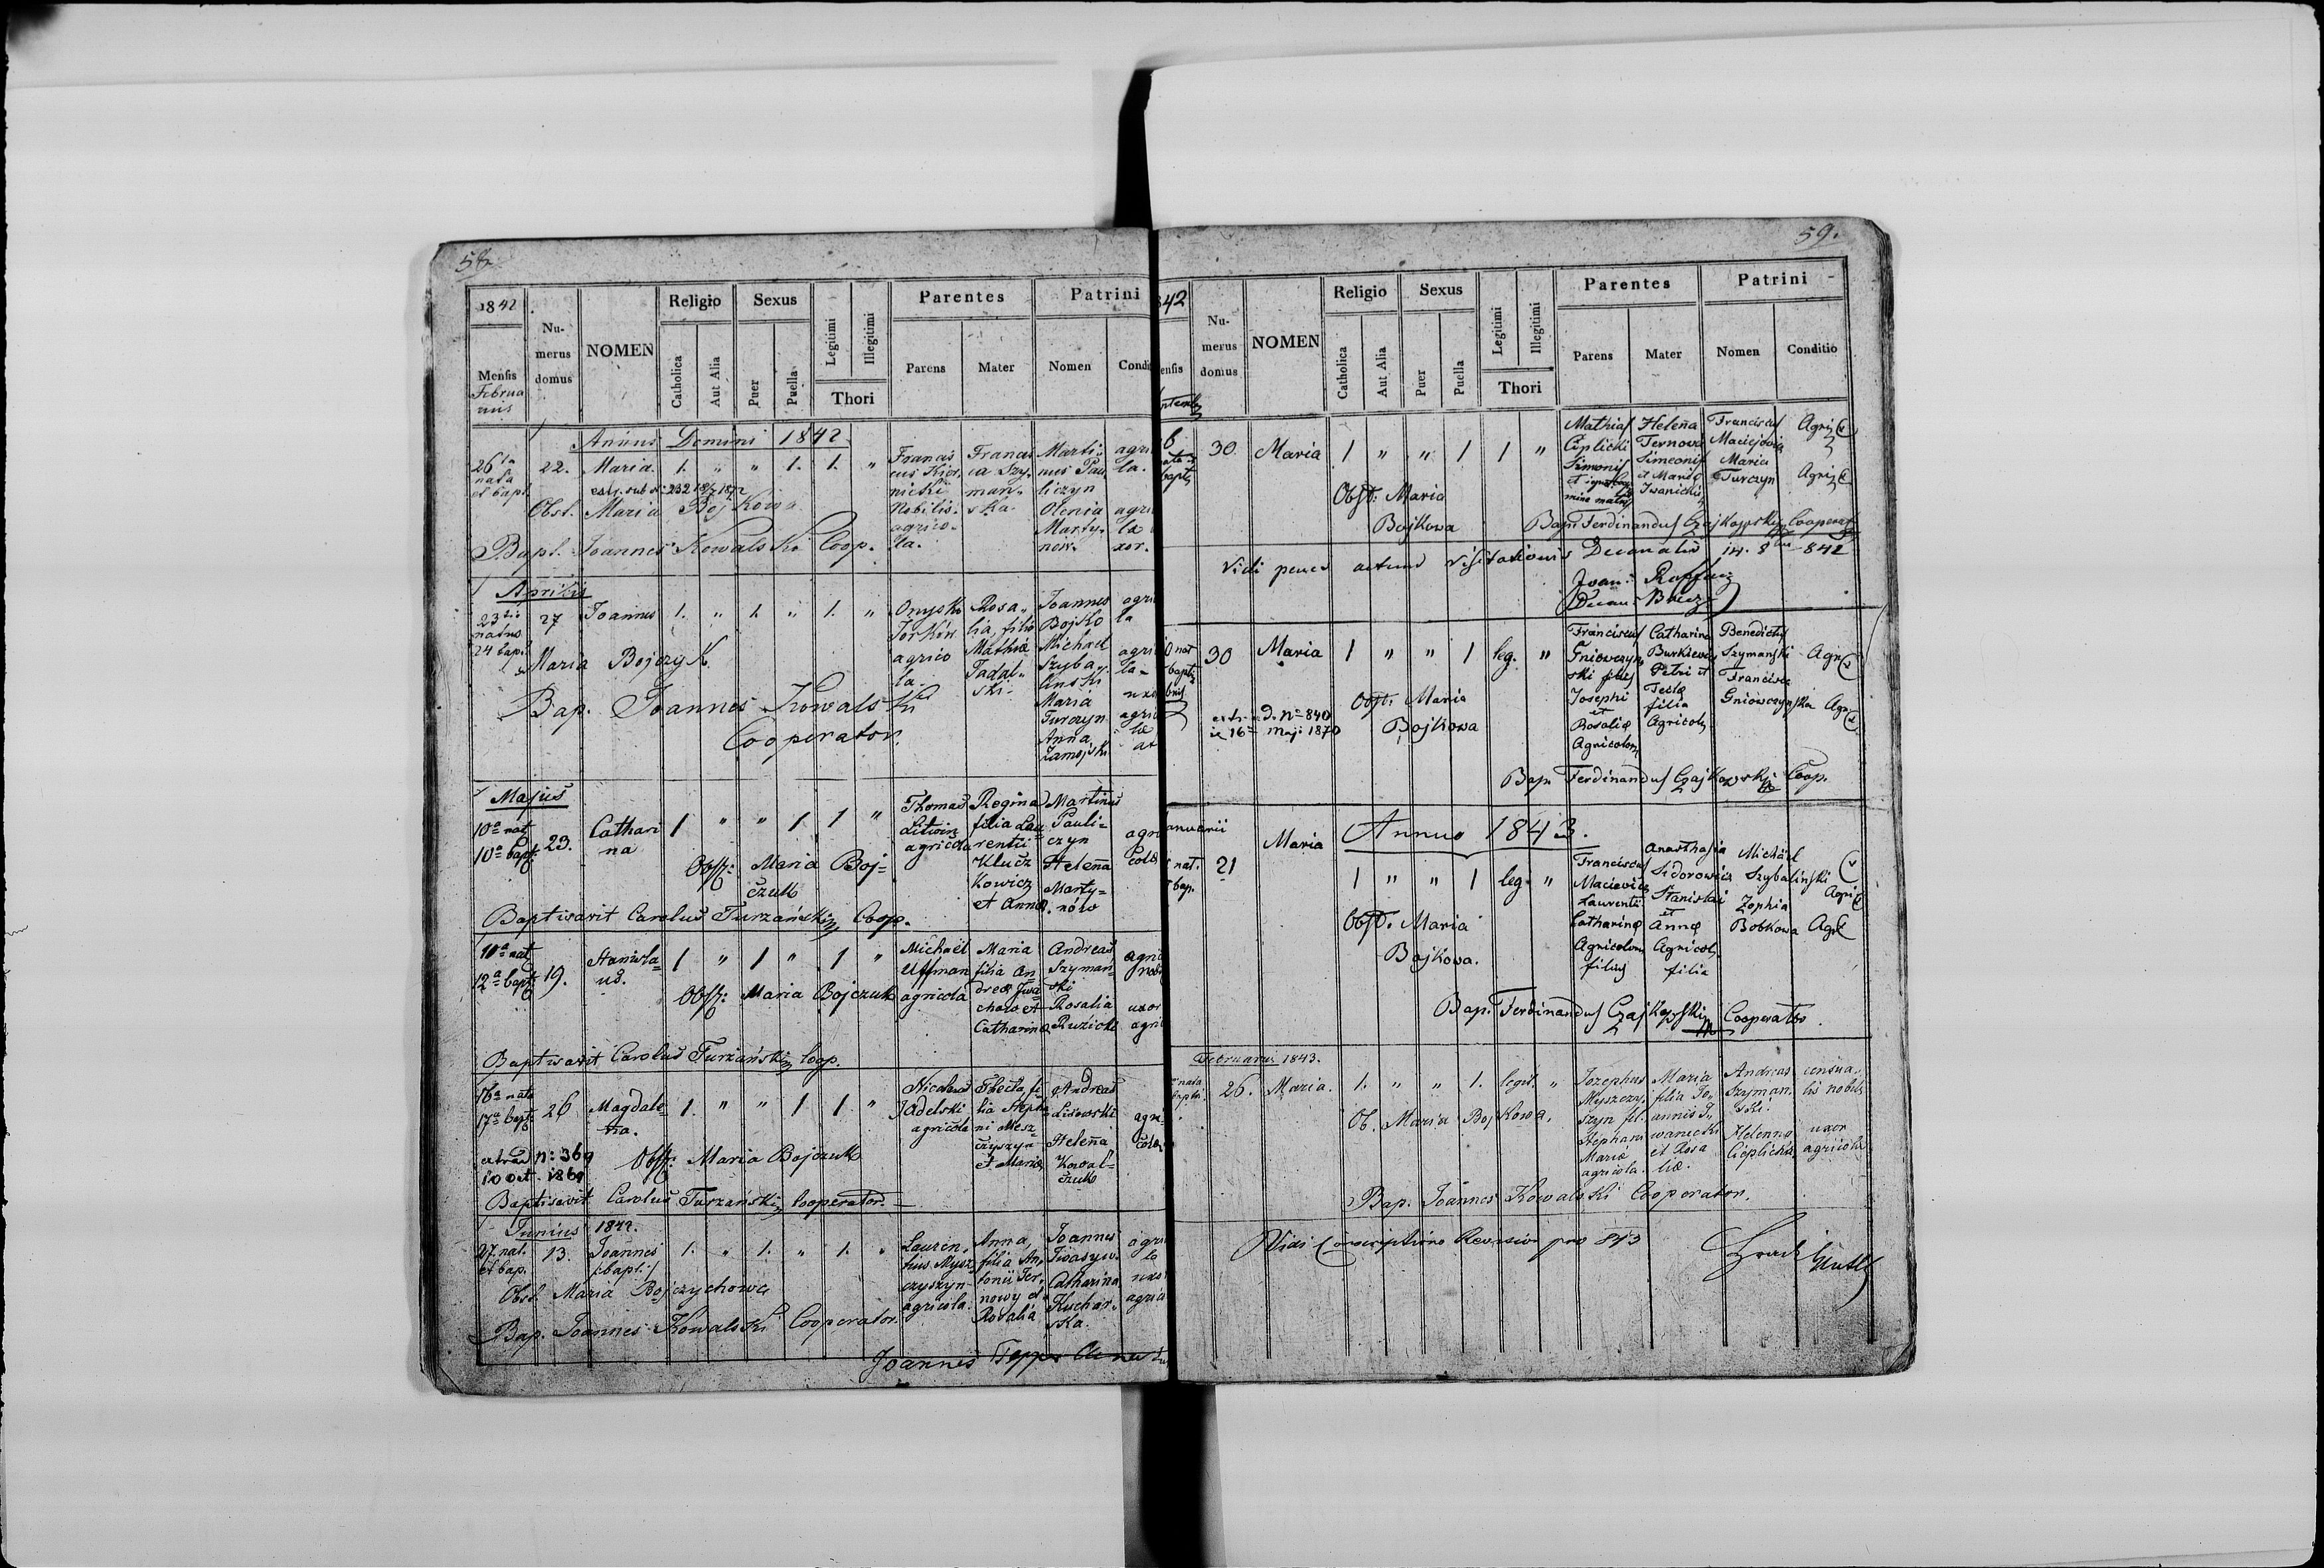 58
1842
Mensis
Februa
rius
Nu-
merus
domus
NOMEN
Religio
Catholica
Aut Alia
Sexus
Puer
Puella
Legitimi
Illegitimi
Thori
Parentes
Parens
Mater
Patrini
Nomen
Condi
Annus Domini 1842
26
nata
et bapt.
22. Maria. 1. " " 1. 1. "
Francis
nicki
Nobilis.
agrico-
la.
Francis
ca Szy-
man-
ska
Marti-
nus Pau
liczyn
Olenia
Marty-
now.
agri
la.
agri
la
xor.
Obst. Maria Bojkowa
Bapt. Joannes Kowalski Coop.
Aprilis
23tio
natus
24 bap.
27 Joannes 1. " 1. " 1. "
Onysko
agrico
la.
Rosa-
lia, filia
Mathiæ
Tadal-
ski
Joannes
Bojko
Michael
Szyba-
linski
Maria
Turczyn
Anna
Zamojski
agri
la
agri
la-
uxo
agri
Maria Bojczyk
Bap. Joannes Kowalski
Cooperator.
Majus
10a nat
10a bapt.
23.
Cathari
na
1 " " 1 1 "
Thomas
Litwin
agricola
Regina
filia Lau
rentii
Klucz
kowicz
et Anna
Martinus
Pauli=
czyn
Helena
Marty=
nów
agri
colæ
Obst: Maria Boj=
czuk
Baptisavit Carolus Turzański Coop.
11a nat
12a bapt.
19.
Stanisla=
us.
1 " 1 " 1 "
Michael
Uffman
agricola
Maria
filia An
dreæ Iwa
chow et
Catharina
Andreas
Szyman=
ski
Rosalia
Ruzicki
agri
uxor
agri
Obst: Maria Bojczuk
Baptisavit Carolus Turzański Coop.
16a nata
17a bapt.
26
Magdale
na.
1. " " 1 1 "
Nicolaus
Jadelski
agricola
Thecla fi=
lia Stepha
ni Mesz=
czyszyn
et Maria
Andreas
Lisowski
Helena
Kowal=
czuk
agri
colæ
extrad n: 369
10 Oct. 1869
Obst: Maria Bojczuk
Baptisavit Carolus Turzański Cooperator.
Junius 1842.
27. nat.
et bap.
13. Joannes
bapt:
1. " 1. " 1. "
Lauren-
tius Mysz-
czyszyn
agricola.
Anna,
filia An-
tonii Ter-
nowy et
Rosalia
Joannes
Iwasyw.
Catharina
Kuchar-
ska.
agri
la
uxo
agric
Obst. Maria Bojczychowa
Bap. Joannes Kowalski Cooperator.
Joannes
59.
842
ensis
Nu-
merus
domus
NOMEN
Religio
Catholica
Aut Alia
Sexus
Puer
Puella
Legitimi
Illegitimi
Thori
Parentes
Parens
Mater
Patrini
Nomen
Conditio
6
30 Maria 1 " " 1 1 "
Mathias
Ciplicki
Simonis
Helena
Ternova
Simeonis
et Mariæ
Iwanickis
Franciscus
Maciejowicz
Maria
Turczyn
Agri
Agri
Obst: Maria
Bojkowa
Bap. Ferdinandus Czajkowski Cooperat
Vidi penes actum Visitationis Decanalis 842
30 Maria 1 " " 1 leg. "
Franciscus
Gniowczyn
ski filius
Josephi
et
Rosaliæ
Agricolarum
Catharina
Burkiewicz
Petri et
Teclæ
filia
Agricol
Benedictus
Szymanski
Francisca
Gniowczynska
Agri
Agri
extrad. No 840
16 Maji 1870
Obst: Maria
Bojkowa
Bap. Ferdinandus Czajkowski Coop.
Annus 1843.
anuarii
nat.
bap.
21
Maria
1 " " 1 leg. "
Franciscus
Macievicz
Laurentii
Catharinæ
Agricolarum
filius
Anasthasia
Sidorowicz
Stanislai
et
Annæ
Agricol
filia
Michael
Szybalinski
Zophia
Bobkowa
Agri
Agri
Obst. Maria
Bojkowa.
Bap. Ferdinandus Czajkowski Cooperator.
Februarii 1843.
nata
26. Maria. 1. " " 1. legit. "
Josephus
Myszczy-
szyn fil.
Stephani
Mariæ
agricola.
Maria
filia Jo-
annis I-
wanicki
et Rosa
liæ.
Andreas
Szyman-
ski.
Helenna
Cieplicka
censua-
lis nobilis
uxor
agricolæ
Ob. Maria Bojkowa,
Bap. Joannes Kowalski Cooperator.
Vidi Conscriptione Revision pro 843